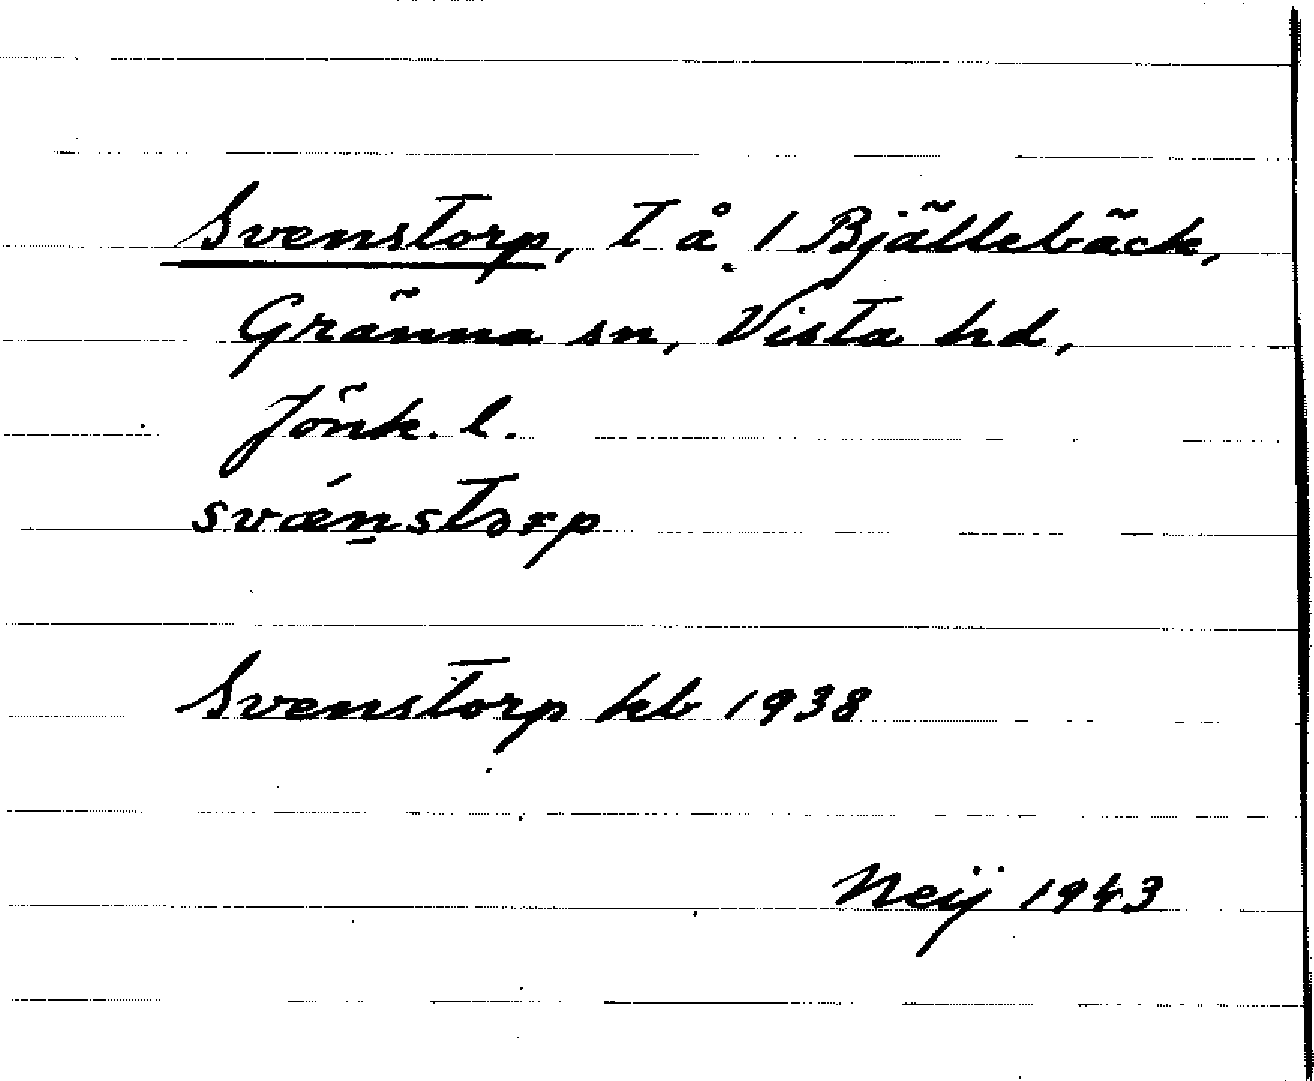 Svenstorp, t å 1 Bjällebäck,
Gränna sn, Vista hd,
Jönk. l.
svǽn̠stɔrp
Svenstorp kb 1938
Neij 1943